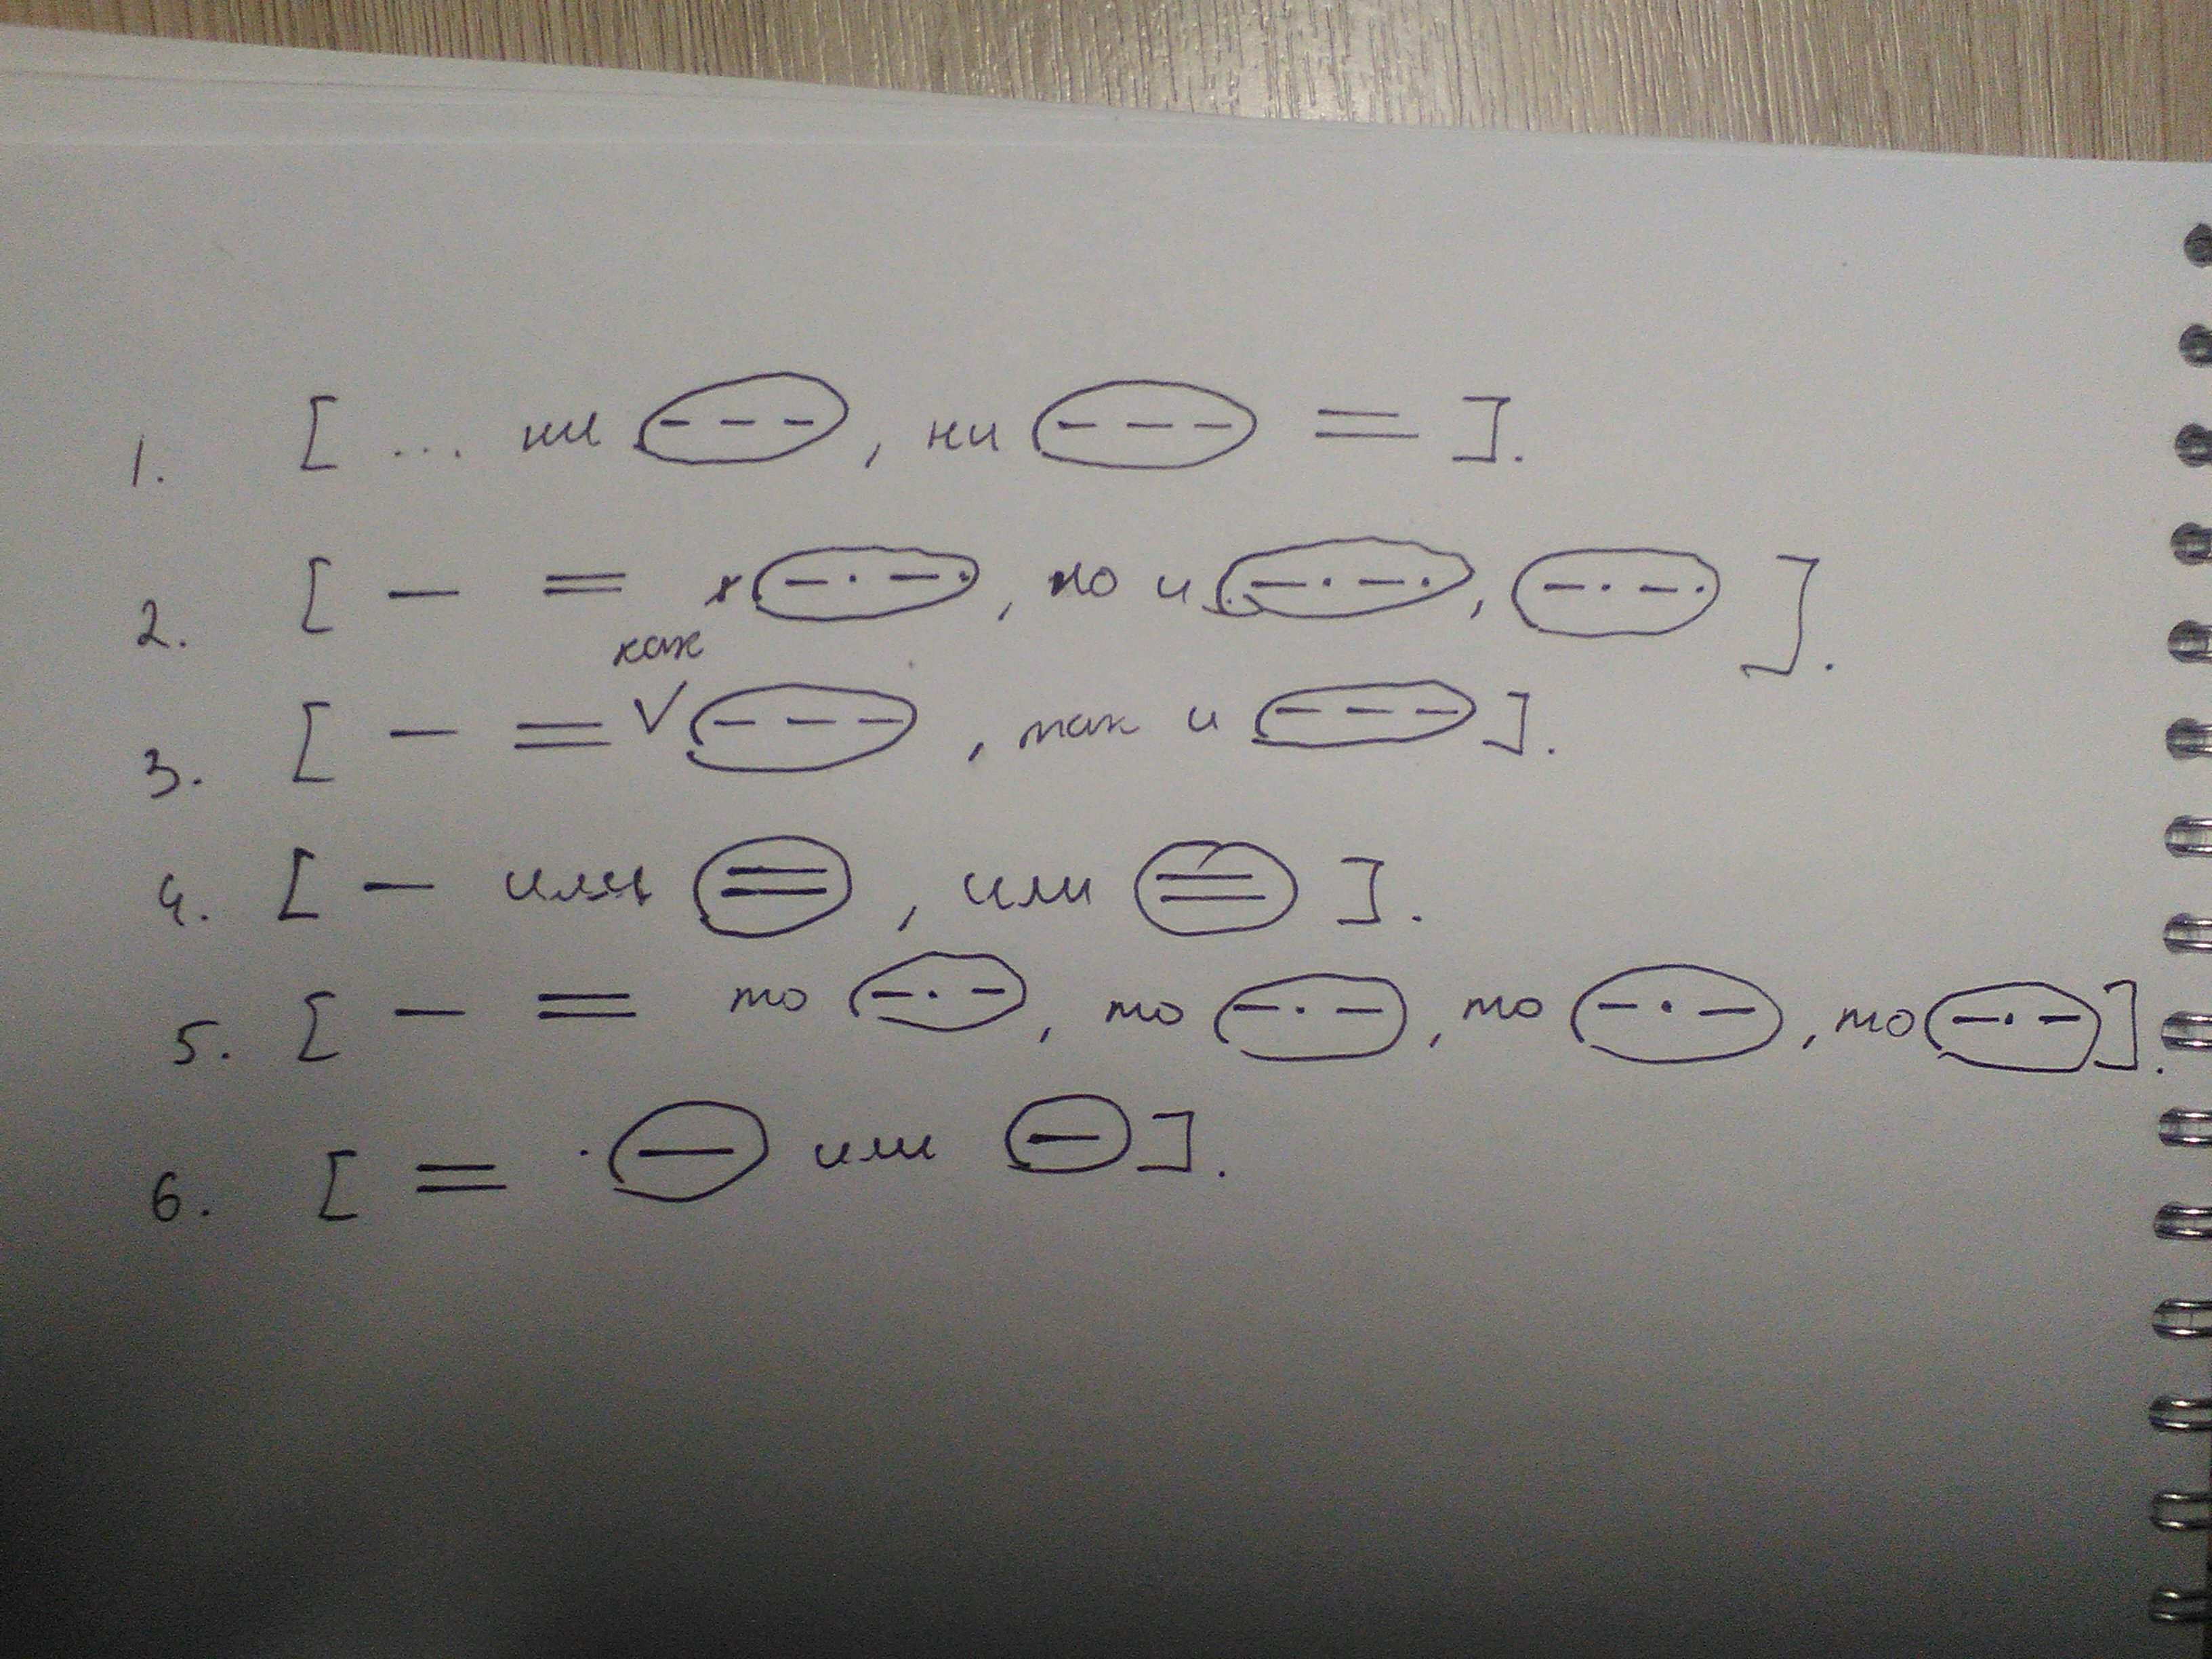 1. [ ... ни (– – –), ни (– – –) = ].
2. [ – = (– · – ·), но и (– · – ·), (– · – ·) ].
3. [ – = как V (– – –), так и (– – –) ].
4. [ – или (=), или (=) ].
5. [ – = то (– · –), то (– · –), то (– · –), то (– · –) ].
6. [ = · (–) или (–) ].